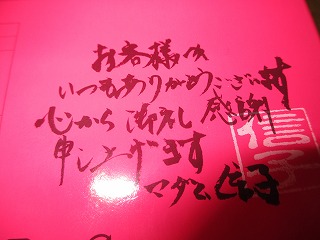 お客様
いつもありがとうございます
心から 御礼し 感謝
申し上げます
マダム 信子
信子